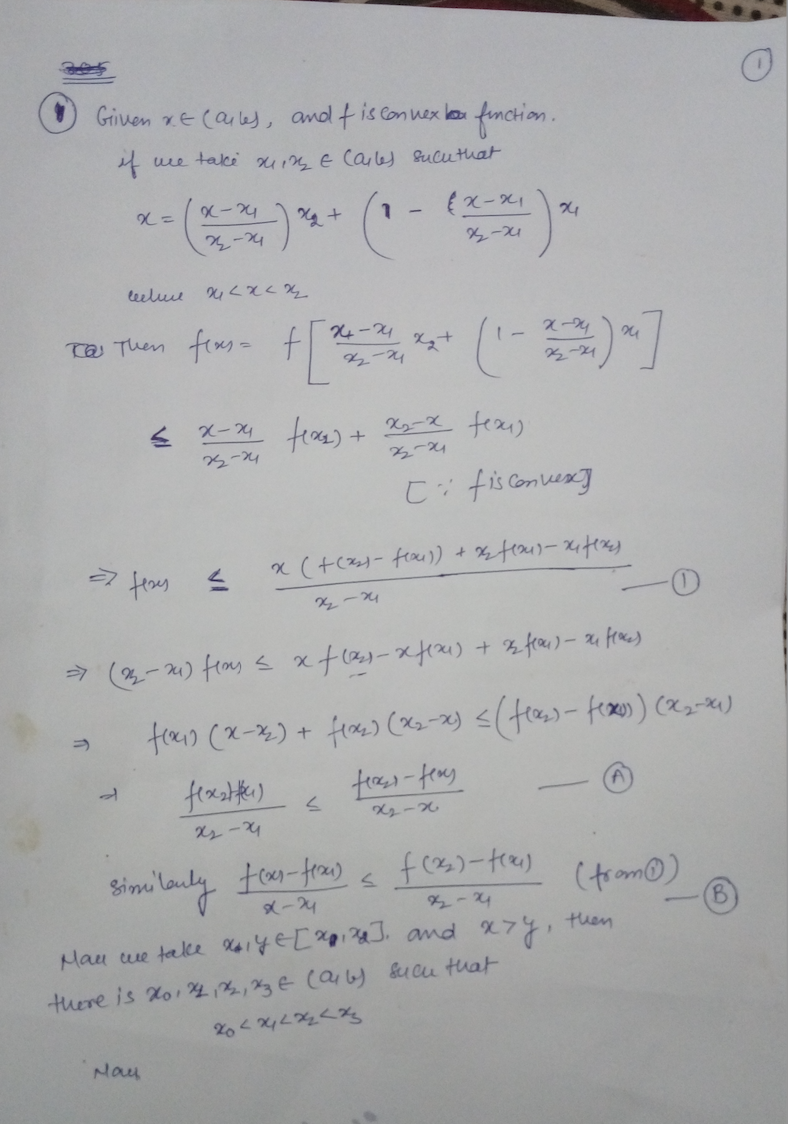 ①
① Given x ∈ (a,b), and f is convex function.
if we take x₁, x₂ ∈ (a,b) such that
x = ((x-x₁)/(x₂-x₁)) x₂ + (1 - (x-x₁)/(x₂-x₁)) x₁
where x₁ < x < x₂
Then f(x) = f[(x-x₁)/(x₂-x₁) x₂ + (1 - (x-x₁)/(x₂-x₁)) x₁]
≤ (x-x₁)/(x₂-x₁) f(x₂) + (x₂-x)/(x₂-x₁) f(x₁)
[∵ f is convex]
⇒ f(x) ≤ (x(f(x₂) - f(x₁)) + x₂f(x₁) - x₁f(x₂))/(x₂-x₁) — ①
⇒ (x₂-x₁) f(x) ≤ x f(x₂) - x f(x₁) + x₂f(x₁) - x₁f(x₂)
⇒ f(x₁)(x-x₂) + f(x₂)(x₂-x) ≤ (f(x₂) - f(x))(x₂-x₁)
⇒ (f(x₂)-f(x₁))/(x₂-x₁) ≤ (f(x₂)-f(x))/(x₂-x) — Ⓐ
Similarly (f(x)-f(x₁))/(x-x₁) ≤ (f(x₂)-f(x₁))/(x₂-x₁) (from ①) — Ⓑ
Now we take x, y ∈ [x₁, x₂]. and x > y, then
there is x₀, x₁, x₂, x₃ ∈ (a,b) such that
x₀ < x₁ < x₂ < x₃
Now